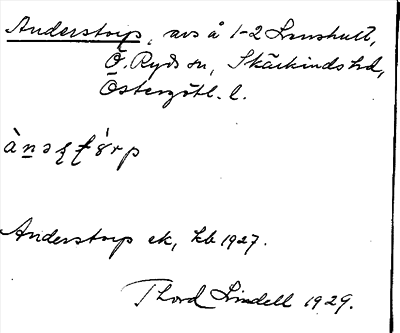 Anderstorp, avs å 1-2 Linshult,
Ö. Ryds sn, Skärkinds hd,
Östergötl. l.
Anderstorp ek, kb 1927.
Thord Lindell 1929.